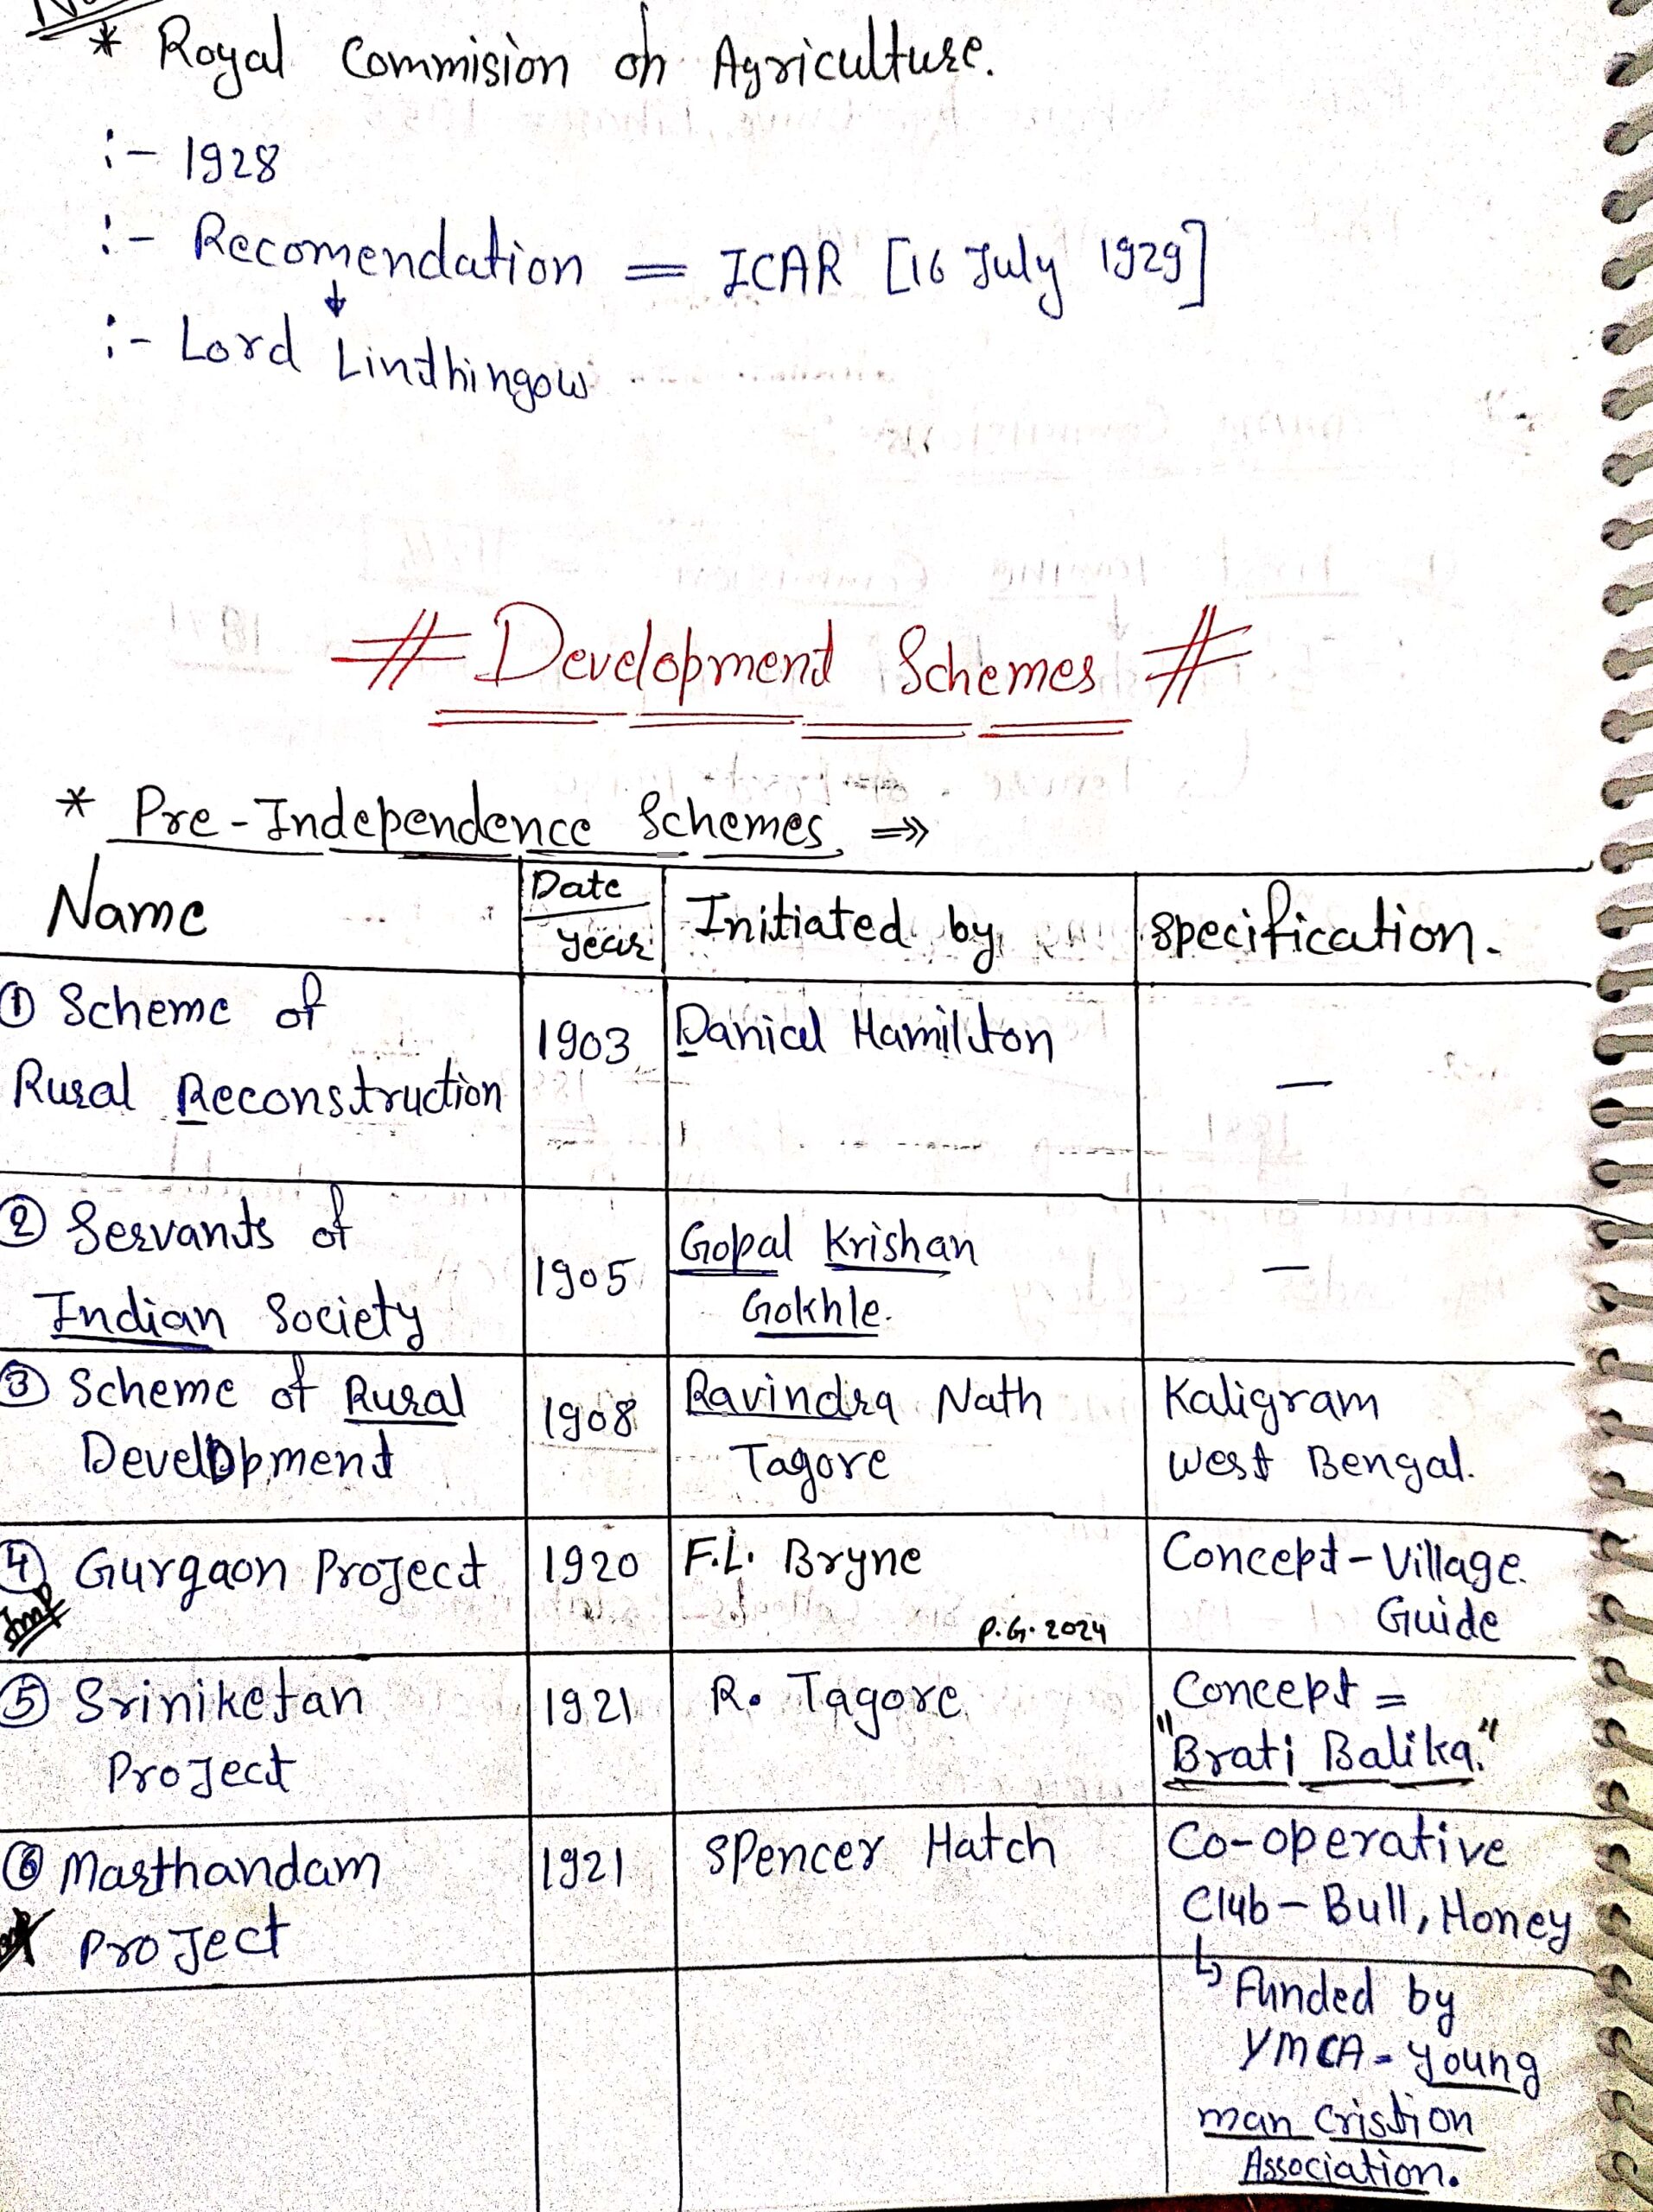 * Royal Commision on Agriculture.
:- 1928
:- Recomendation = ICAR [16 July 1929]
↓
:- Lord Linthingow
# Development Schemes #
* Pre-Independence Schemes ⇒
Name | Date/year | Initiated by | specification.
① Scheme of Rural Reconstruction | 1903 | Danial Hamilton | —
② Servants of Indian Society | 1905 | Gopal Krishan Gokhle. | —
③ Scheme of Rural Development | 1908 | Ravindra Nath Tagore | Kaligram West Bengal.
④ Gurgaon Project | 1920 | F.L. Bryne | Concept-Village Guide
Imp
P.G. 2024
⑤ Sriniketan Project | 1921 | R. Tagore | Concept = "Brati Balika."
⑥ Marthandam Project | 1921 | Spencer Hatch | Co-operative Club - Bull, Honey
↳ Funded by
YMCA - Young
man Cristion
Association.